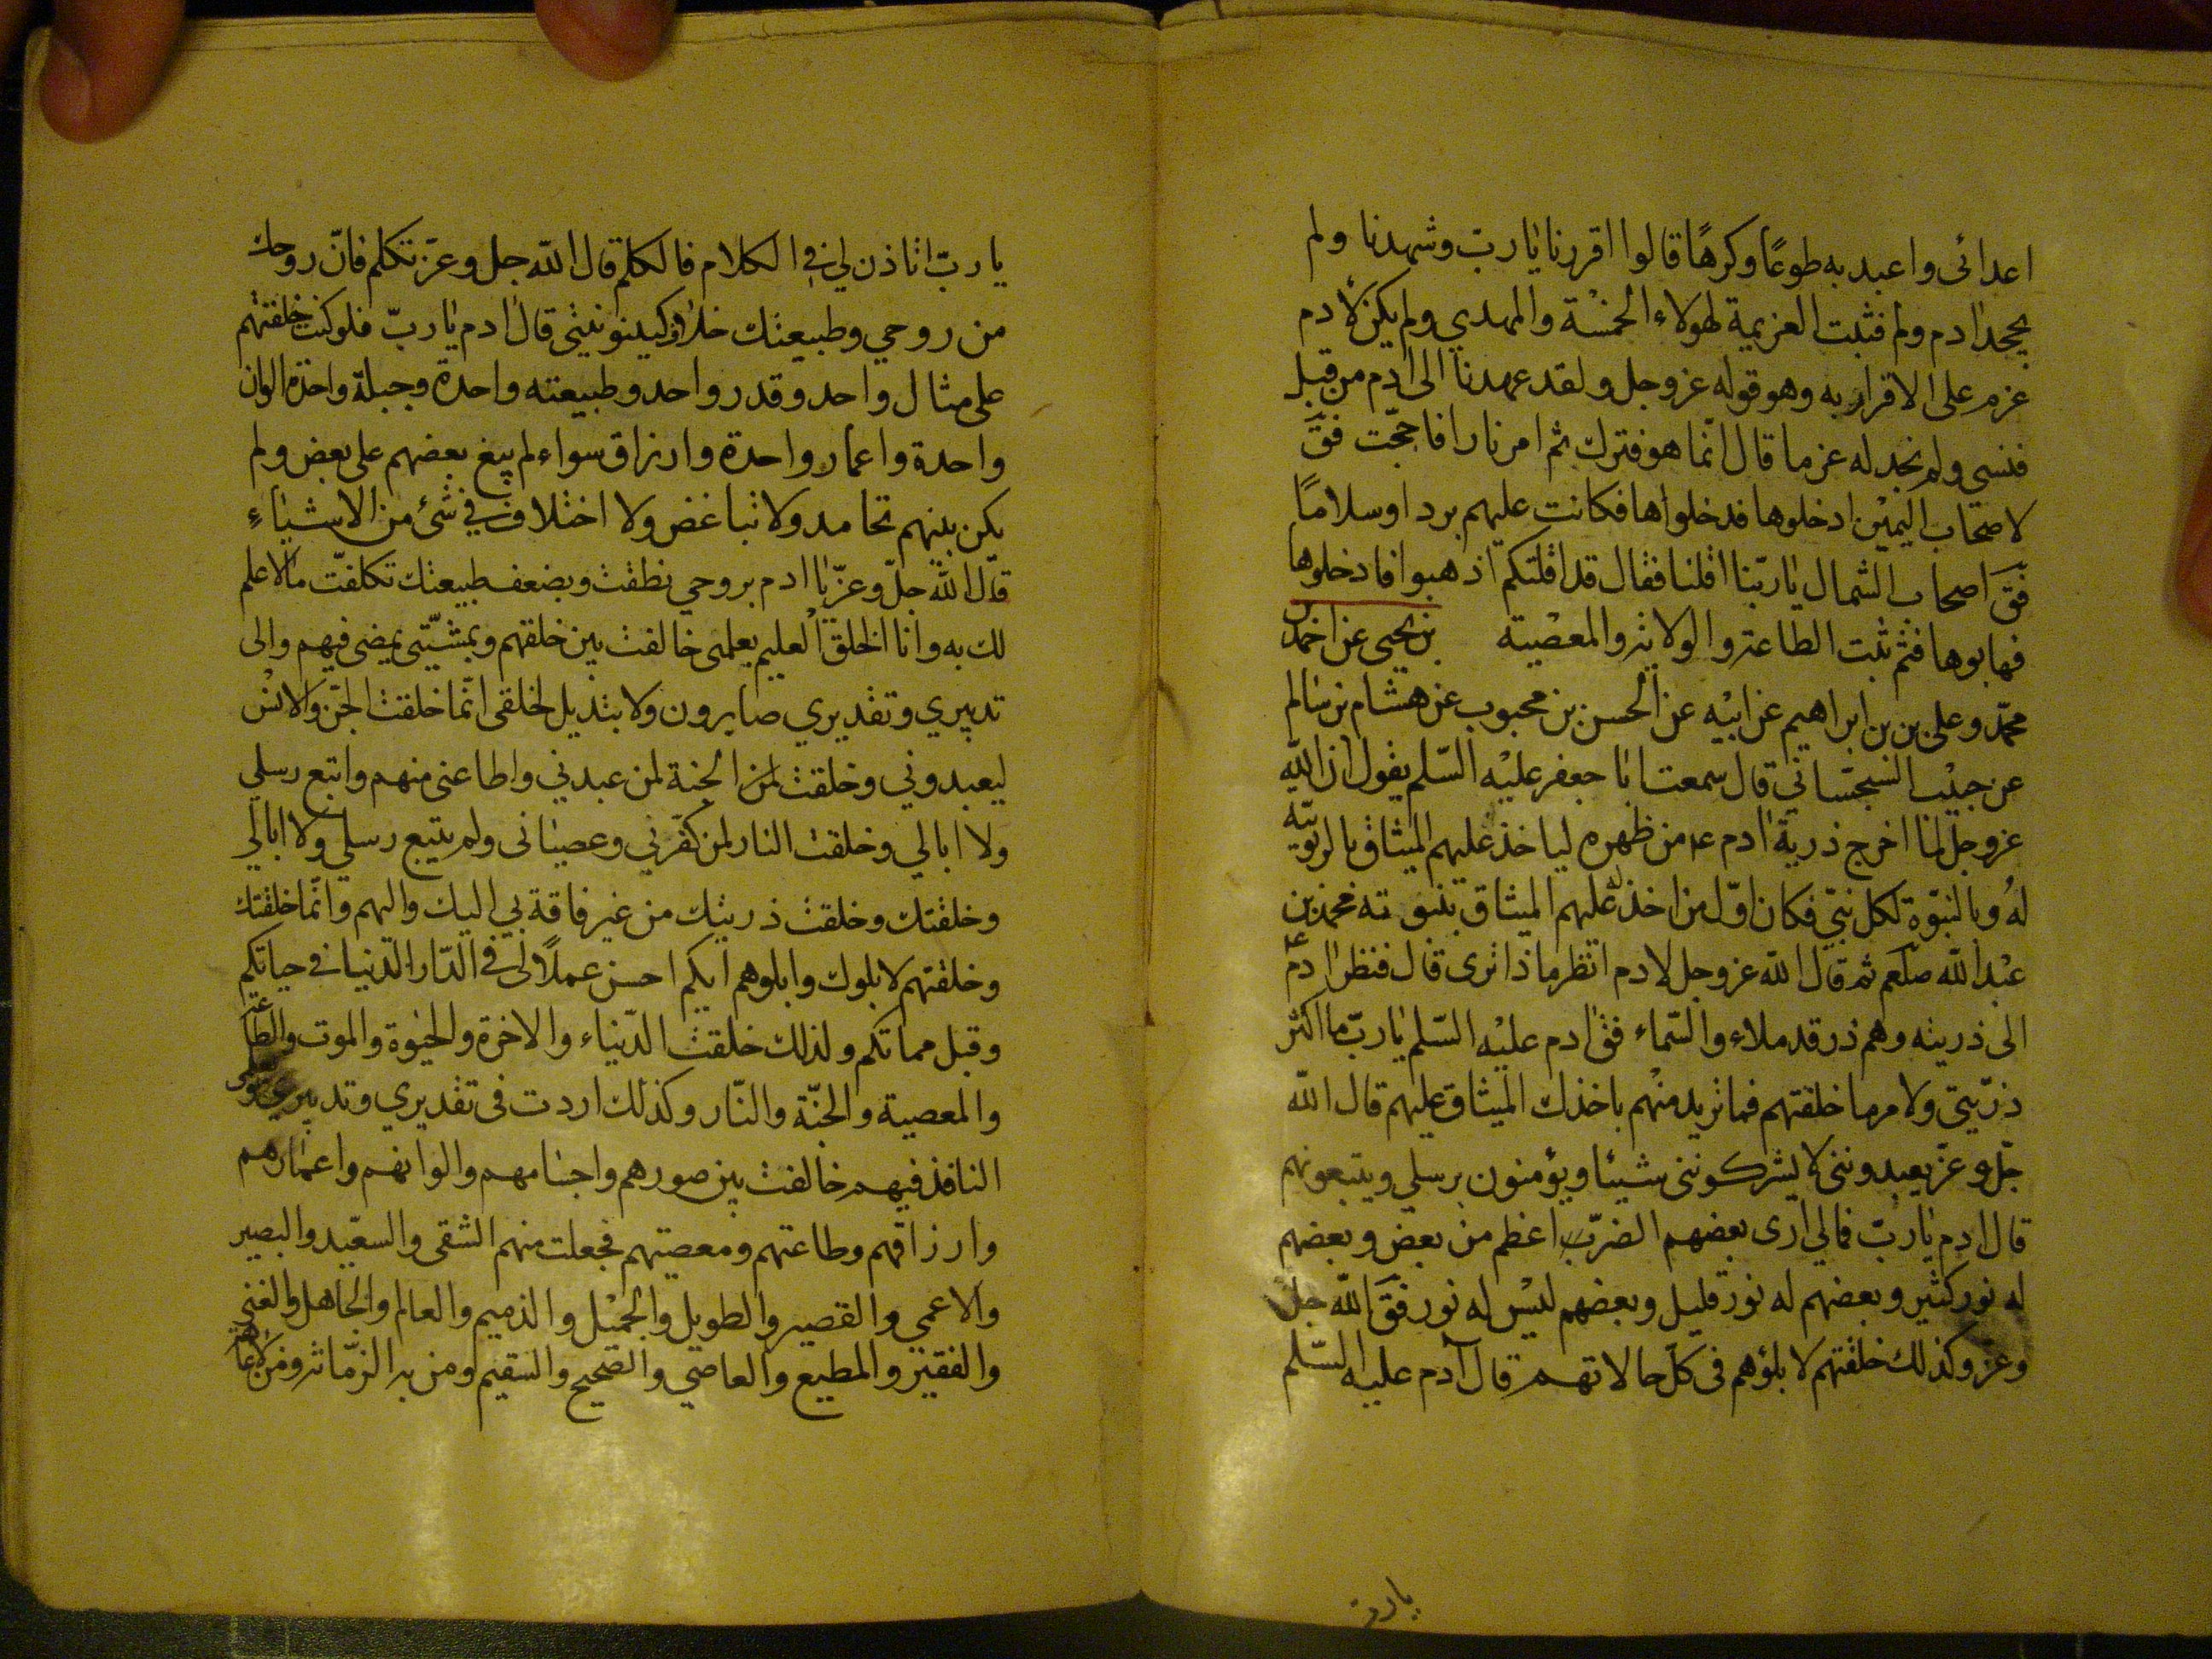 اعدائى واعبد به طوعًا وكرهًا قالوا اقررنا يارب وشهدنا ولم
يجحد ادم ولم فثبت العزيمة لهولاء الخمسة والمهدي ولم يكن لادم
عزم على الاقرار به وهو قوله عزوجل ولقد عهدنا الى ادم من قبل
فنسى ولم نجد له عزما قال انّما هو فترك ثم امر نارا فاججّت فقَ
لاصحاب اليمين ادخلوها فدخلواها فكانت عليهم بردا وسلامًا
فقَ اصحاب الشمال ياربّنا اقلنا فقال قد اقلتكم اذهبوا فادخلوها
فهابوها فثم ثبت الطاعة والولاية والمعصية بن يحيى عن احمد بن
محمّد وعلى بن بن ابراهيم عن ابيه عن الحسن بن محبوب عن هشام بن سالم
عن حبيب السجستاني قال سمعت ابا جعفر عليه السّلم يقول ان اللّه
عزوجل لما اخرج ذرية ادم عم من ظهره لياخذ عليهم الميثاق بالربوبيّه
له وبالنبوّة لكل نبيّ فكان اوّل من اخذ له عليهم الميثاق بنبوته محمد بن
عبد اللّه صلعم ثم قال اللّه عزوجل لادم انظر ماذا ترى قال فنظر ادم عم
الى ذريته وهم ذر قد ملاء والسّماء فقَ ادم عليه السّلم ياربّ ما اكثر
ذرّيتي ولامر ما خلقتهم فما تريد منهم باخذك الميثاق عليهم قال اللّه
جلّ وعزّ يعبدوننى لا يشركوننى شيئا ويؤمنون برسلي ويتبعونهم
قال ادم ياربّ فمالي ارى بعضهم الضرّب اعظم من بعض وبعضهم
له نور كثير وبعضهم له نور قليل وبعضهم ليس له نور فقَ اللّه جل
وعزّ وكذلك خلقتهم لابلؤهم فى كلّ حالاتهم قال آدم عليه السّلم
يارب
يا ربّ اتاذن لي في الكلام فالكلم قال اللّه جل وعزّ تكلم فانّ روحك
من روحي وطبيعتك خلاف كينونيتى قال ادم ياربّ فلو كنت خلقتهم
على مثال واحد وقدر واحد وطبيعته واحدة وجبلة واحدة الوان
واحدة واعمار واحدة وارزاق سواء لم يبغ بعضهم على بعض ولم
يكن بينهم تحامد ولا تباغض ولا اختلاف في شئ من الاشياءِ
قال اللّه جلّ وعزّ يا ادم بروحي نطقت وبضعف طبيعتك تكلفّت مالا علم
لك به وانا الخلق العليم بعلمى خالفت بين خلقهم وبمشيّتى يمضى فيهم والى
تدبيري وتقديري صايرون ولا بتديل لخلقى انّما خلقت الجنّ والانس
ليعبدوني وخلقت لمن الجنة لمن عبدني واطاعنى منهم واتبع رسلي
ولا ابالي وخلقت النار لمن كفّر بي وعصيانى ولم يتبع رسلي ولا ابالي
وخلقتك وخلقت ذريتك من غير فاقة بي اليك واليهم وانّما خلقتك
وخلقتهم لابلوك وابلوهم ايكم احسن عملاً لى فى الدّار الدّنيا فى حياتكم
وقبل مماتكم ولذلك خلقت الدّنياء والاخرة والحيوة والموت والطاعة
والمعصية والجنّة والنّار وكذلك اردت فى تقديري وتدبيري وبعلمى
النافذ فيهم خالفت بين صورهم واجسامهم والوانهم واعمارهم
وارزاقهم وطاعتهم ومعصتهم فجعلت منهم الشقى والسعّيد والبصير
والاعمى والقصير والطويل والجميل والذميم والعالم والجاهل والغنى
والفقير والمطيع والعاصي والصّحيح والسّقيم ومن به الزّمانة ومن لاعاهة